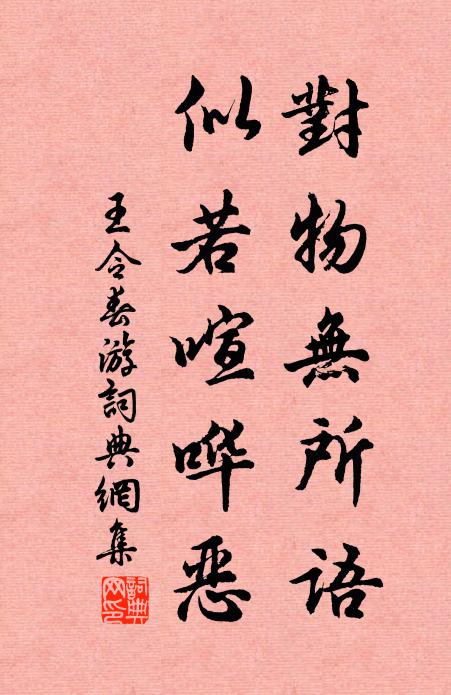 對物無所語
似若喧哗恶
王令春游詞典網集
詞典
网印